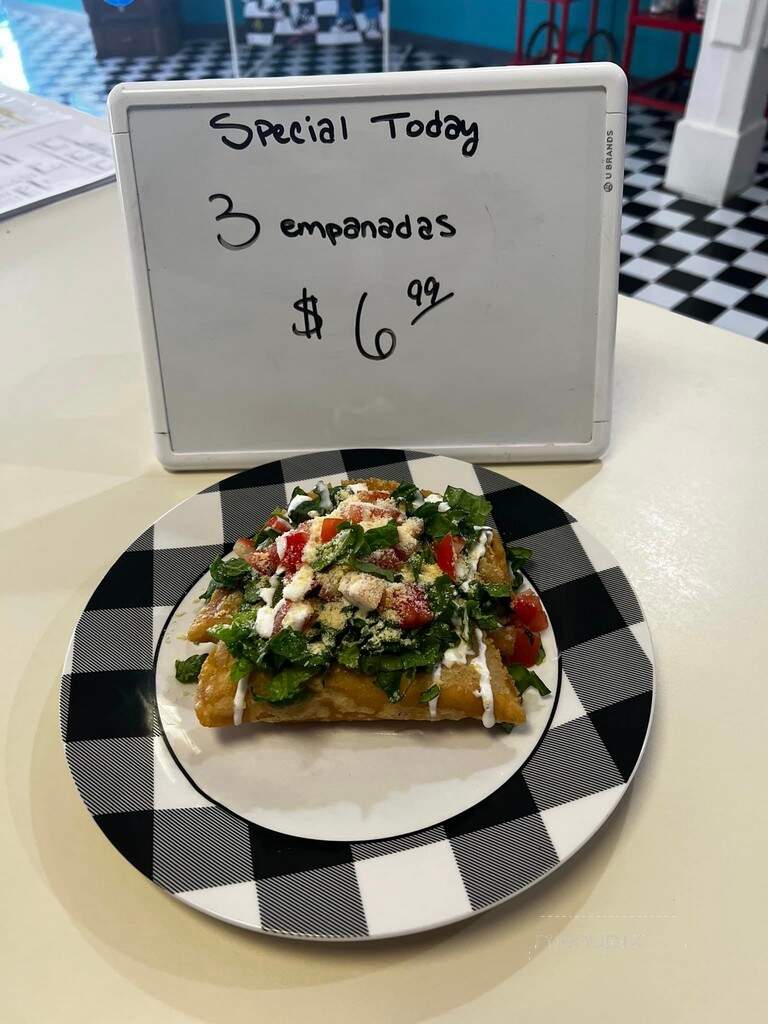 Special Today
3 empanadas
$ 6.99
U BRANDS
menupix